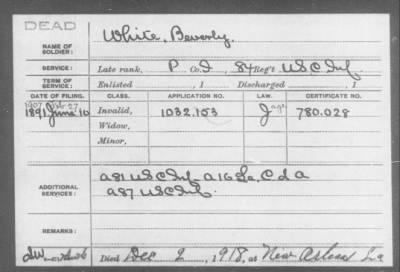 DEAD
NAME OF SOLDIER: White, Beverly.
SERVICE: Late rank, P Co. I, 84 Reg't U.S.C. Inf.
TERM OF SERVICE: Enlisted , 1 Discharged , 1
DATE OF FILING. CLASS. APPLICATION NO. LAW. CERTIFICATE NO.
1907 Feb 27
1891 June 10 Invalid, 1032.153 J 780.028
Widow,
Minor,
ADDITIONAL SERVICES: A 81 U.S.C. Inf. A 16 C d A
A 87 U.S.C. Inf.
REMARKS:
Died Dec 2, 1918, at New Orleans La